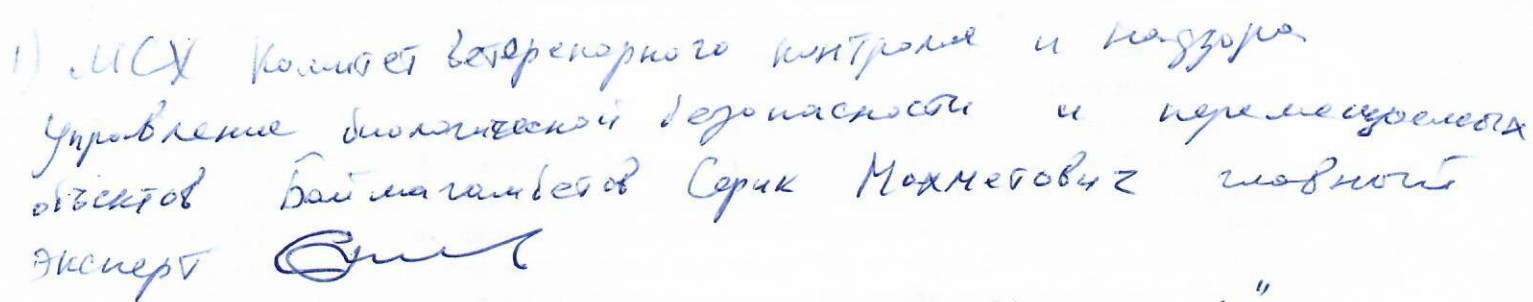 1) МСХ Комитет ветеренарного контроля и надзора
Управление биологической безопасности и перемещаемых
объектов Баймагамбетов Серик Махметович главный
эксперт